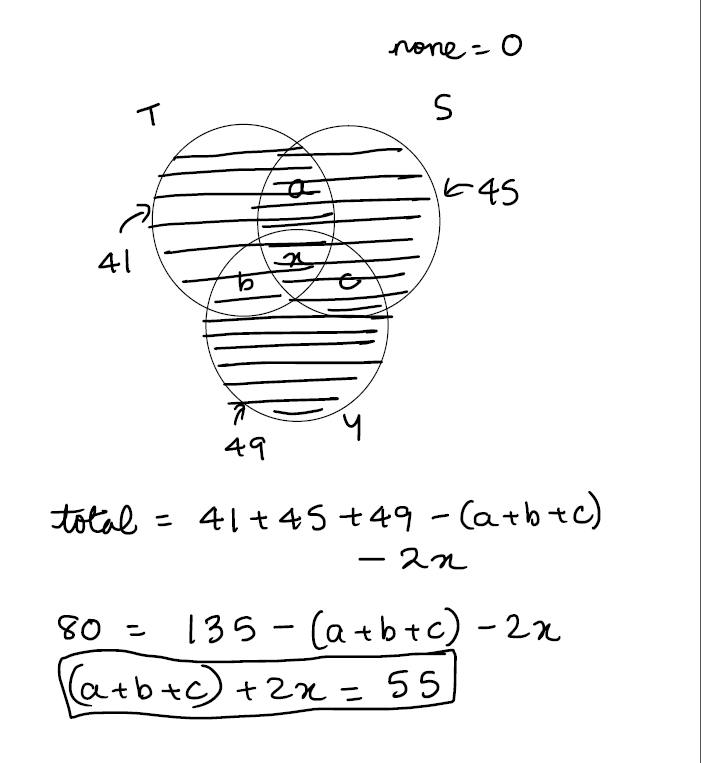 none = 0
T
S
a
45
41
x
b
c
49
y
total = 41 + 45 + 49 - (a+b+c)
- 2x
80 = 135 - (a+b+c) - 2x
(a+b+c) + 2x = 55